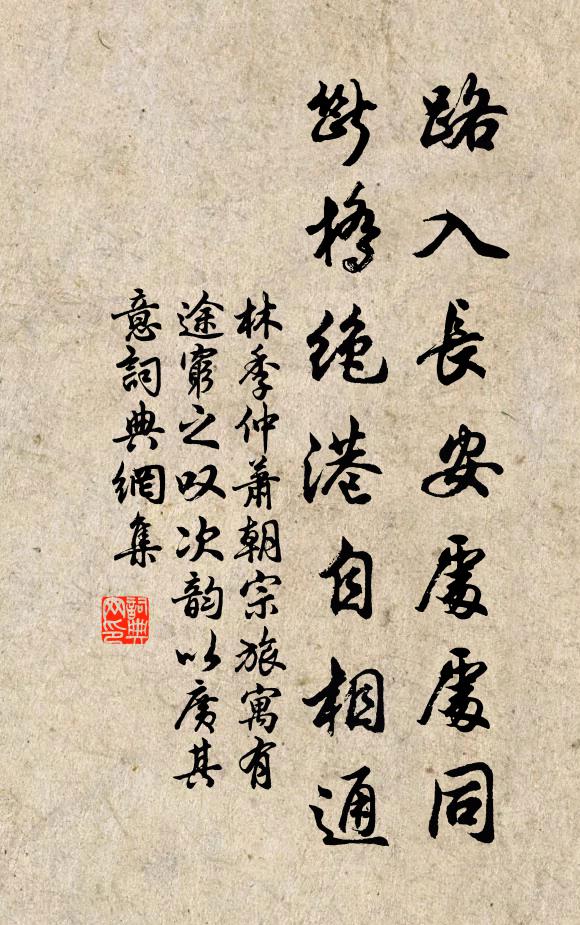 路入長安處處同
斷橋絶港自相通
林季仲蕭朝宗旅寓有
途窮之叹次韵以廣其
意詞典網集
詞典
网印